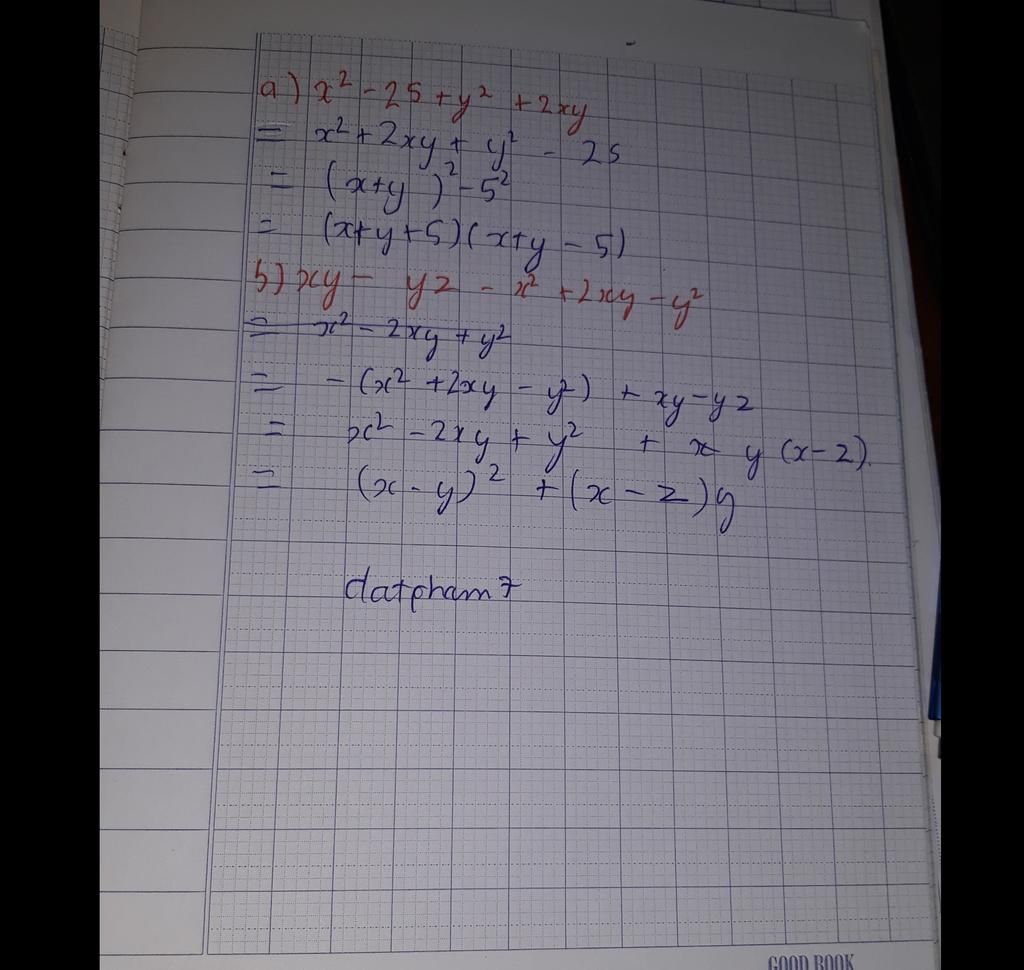 a) x² - 25 + y² + 2xy
= x² + 2xy + y² - 25
= (x+y)² - 5²
= (x+y+5)(x+y-5)
b) xy - yz - x² + 2xy - y²
= x² - 2xy + y²
= -(x² + 2xy - y²) + xy - yz
= x² - 2xy + y² + x y (x-z).
= (x-y)² + (x-z)y
datpham7
GOOD BOOK